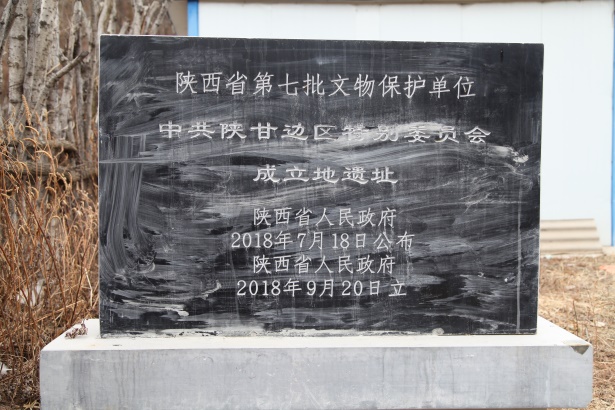 陕西省第七批文物保护单位
中共陕甘边区特别委员会
成立地遗址
陕西省人民政府
2018年7月18日公布
陕西省人民政府
2018年9月20日立